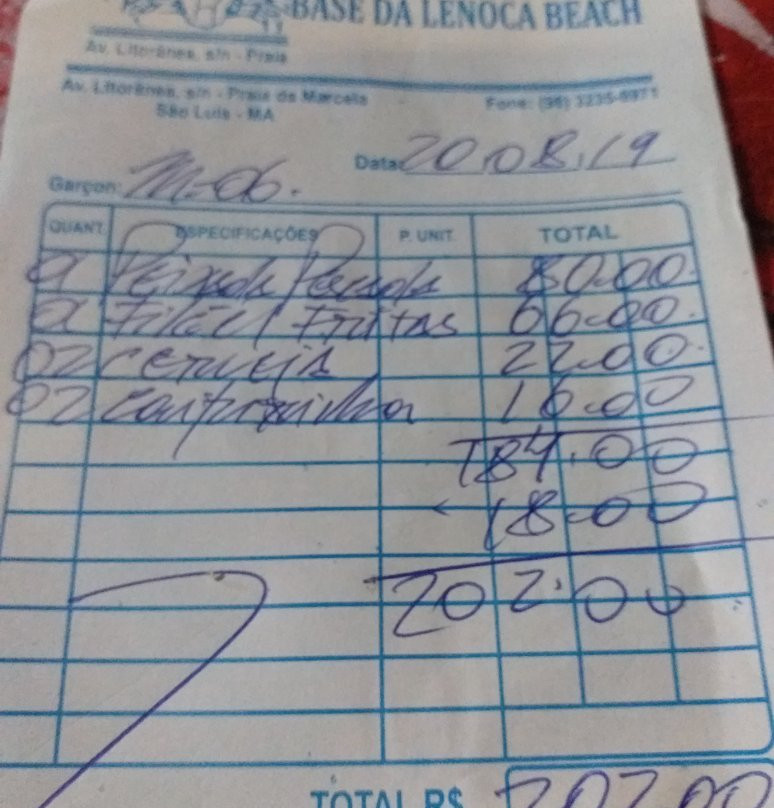 BASE DA LENOCA BEACH
Av. Litorânea, s/n - Praia
Av. Litorânea, s/n - Praia de Marcela Fone: (98) 3235-8971
São Luís - MA
Data: 20.08.19
Garçon: M-06.
QUANT. ESPECIFICAÇÕES P. UNIT. TOTAL
01 Peixada 80.00
01 Filé c/ Fritas 66.00
02 cerveja 22.00
02 16.00
184.00
18.00
202.00
TOTAL R$ 202,00